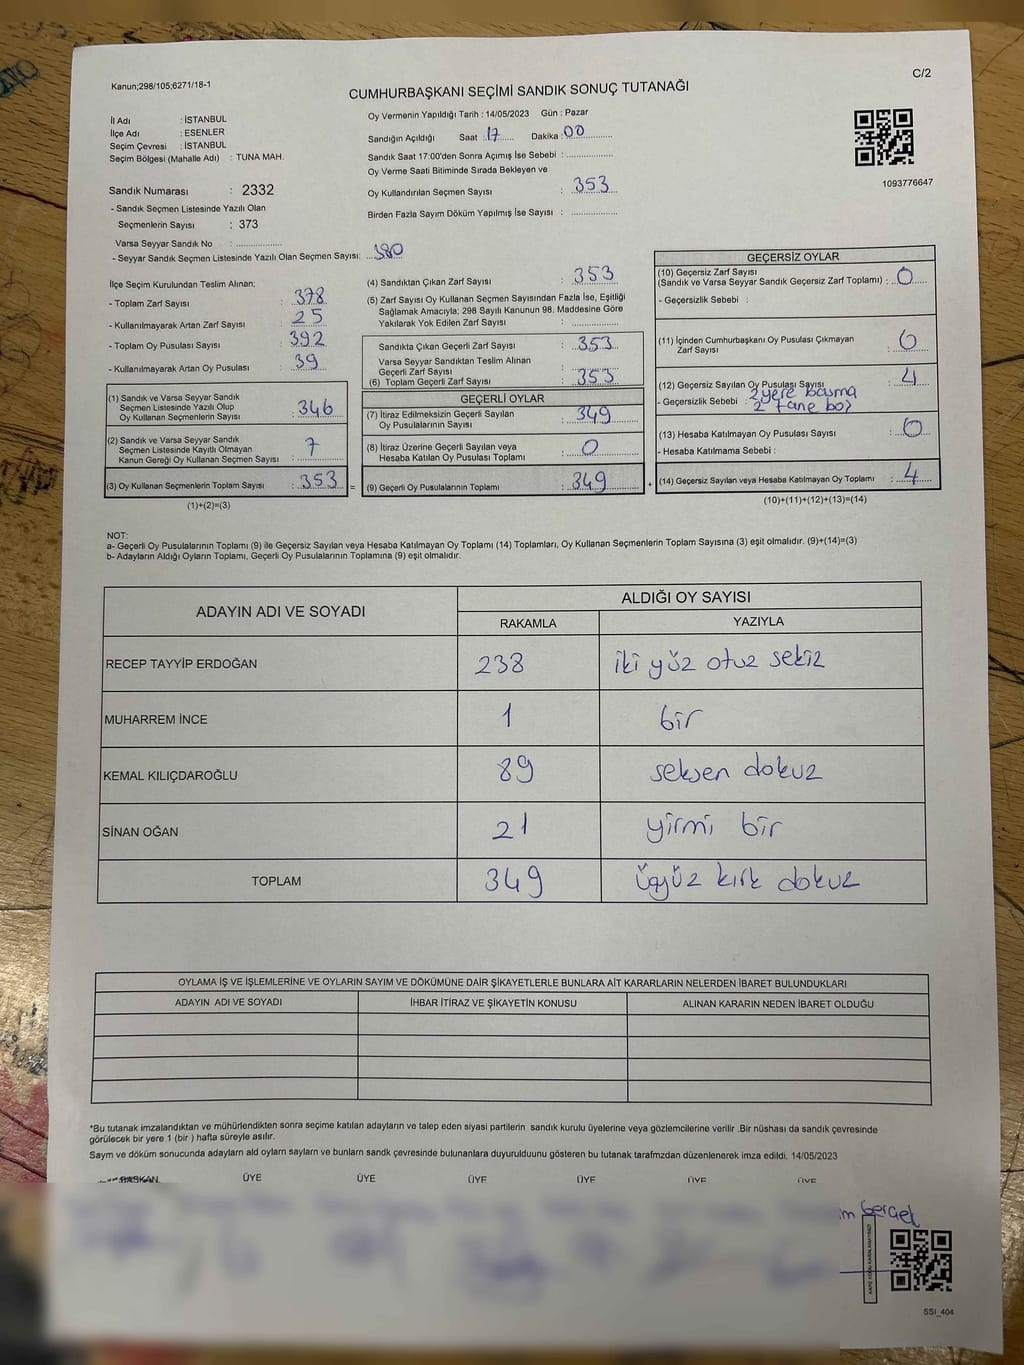 Kanun;298/105;6271/18-1
C/2
CUMHURBAŞKANI SEÇİMİ SANDIK SONUÇ TUTANAĞI
İl Adı : İSTANBUL
İlçe Adı : ESENLER
Seçim Çevresi : İSTANBUL
Seçim Bölgesi (Mahalle Adı) : TUNA MAH.
Oy Vermenin Yapıldığı Tarih : 14/05/2023 Gün : Pazar
Sandığın Açıldığı Saat : 17 Dakika : 00
Sandık Saat 17:00'den Sonra Açımış İse Sebebi :
Oy Verme Saati Bitiminde Sırada Bekleyen ve
Oy Kullandırılan Seçmen Sayısı : 353
Birden Fazla Sayım Döküm Yapılmış İse Sayısı :
1093776647
Sandık Numarası : 2332
- Sandık Seçmen Listesinde Yazılı Olan
Seçmenlerin Sayısı : 373
Varsa Seyyar Sandık No :
- Seyyar Sandık Seçmen Listesinde Yazılı Olan Seçmen Sayısı: 380
İlçe Seçim Kurulundan Teslim Alınan;
- Toplam Zarf Sayısı : 378
- Kullanılmayarak Artan Zarf Sayısı : 25
- Toplam Oy Pusulası Sayısı : 392
- Kullanılmayarak Artan Oy Pusulası : 39
(1) Sandık ve Varsa Seyyar Sandık
Seçmen Listesinde Yazılı Olup
Oy Kullanan Seçmenlerin Sayısı : 346
(2) Sandık ve Varsa Seyyar Sandık
Seçmen Listesinde Kayıtlı Olmayan
Kanun Gereği Oy Kullanan Seçmen Sayısı : 7
(3) Oy Kullanan Seçmenlerin Toplam Sayısı : 353 =
(1)+(2)=(3)
(4) Sandıktan Çıkan Zarf Sayısı : 353
(5) Zarf Sayısı Oy Kullanan Seçmen Sayısından Fazla İse, Eşitliği
Sağlamak Amacıyla; 298 Sayılı Kanunun 98. Maddesine Göre
Yakılarak Yok Edilen Zarf Sayısı :
Sandıkta Çıkan Geçerli Zarf Sayısı : 353
Varsa Seyyar Sandıktan Teslim Alınan
Geçerli Zarf Sayısı :
(6) Toplam Geçerli Zarf Sayısı : 353
GEÇERLİ OYLAR
(7) İtiraz Edilmeksizin Geçerli Sayılan
Oy Pusulalarının Sayısı : 349
(8) İtiraz Üzerine Geçerli Sayılan veya
Hesaba Katılan Oy Pusulası Toplamı : 0
(9) Geçerli Oy Pusulalarının Toplamı : 349 +
GEÇERSİZ OYLAR
(10) Geçersiz Zarf Sayısı
(Sandık ve Varsa Seyyar Sandık Geçersiz Zarf Toplamı) : 0
- Geçersizlik Sebebi :
(11) İçinden Cumhurbaşkanı Oy Pusulası Çıkmayan
Zarf Sayısı : 0
(12) Geçersiz Sayılan Oy Pusulası Sayısı : 4
- Geçersizlik Sebebi : 2 yere basma
2 tane boş
(13) Hesaba Katılmayan Oy Pusulası Sayısı : 0
- Hesaba Katılmama Sebebi :
(14) Geçersiz Sayılan veya Hesaba Katılmayan Oy Toplamı : 4
(10)+(11)+(12)+(13)=(14)
NOT:
a- Geçerli Oy Pusulalarının Toplamı (9) ile Geçersiz Sayılan veya Hesaba Katılmayan Oy Toplamı (14) Toplamları, Oy Kullanan Seçmenlerin Toplam Sayısına (3) eşit olmalıdır. (9)+(14)=(3)
b- Adayların Aldığı Oyların Toplamı, Geçerli Oy Pusulalarının Toplamına (9) eşit olmalıdır.
ADAYIN ADI VE SOYADI
ALDIĞI OY SAYISI
RAKAMLA YAZIYLA
RECEP TAYYİP ERDOĞAN 238 iki yüz otuz sekiz
MUHARREM İNCE 1 bir
KEMAL KILIÇDAROĞLU 89 seksen dokuz
SİNAN OĞAN 21 yirmi bir
TOPLAM 349 üçyüz kırk dokuz
OYLAMA İŞ VE İŞLEMLERİNE VE OYLARIN SAYIM VE DÖKÜMÜNE DAİR ŞİKAYETLERLE BUNLARA AİT KARARLARIN NELERDEN İBARET BULUNDUKLARI
ADAYIN ADI VE SOYADI İHBAR İTİRAZ VE ŞİKAYETİN KONUSU ALINAN KARARIN NEDEN İBARET OLDUĞU
*Bu tutanak imzalandıktan ve mühürlendikten sonra seçime katılan adayların ve talep eden siyasi partilerin sandık kurulu üyelerine veya gözlemcilerine verilir .Bir nüshası da sandık çevresinde
görülecek bir yere 1 (bir ) hafta süreyle asılır.
Sayım ve döküm sonucunda adayların ald oyların sayların ve bunların sandk çevresinde bulunanlara duyurulduunu gösteren bu tutanak tarafmzdan düzenlenerek imza edildi. 14/05/2023
BAŞKAN ÜYE ÜYE ÜYE ÜYE ÜYE ÜYE
SSI_404